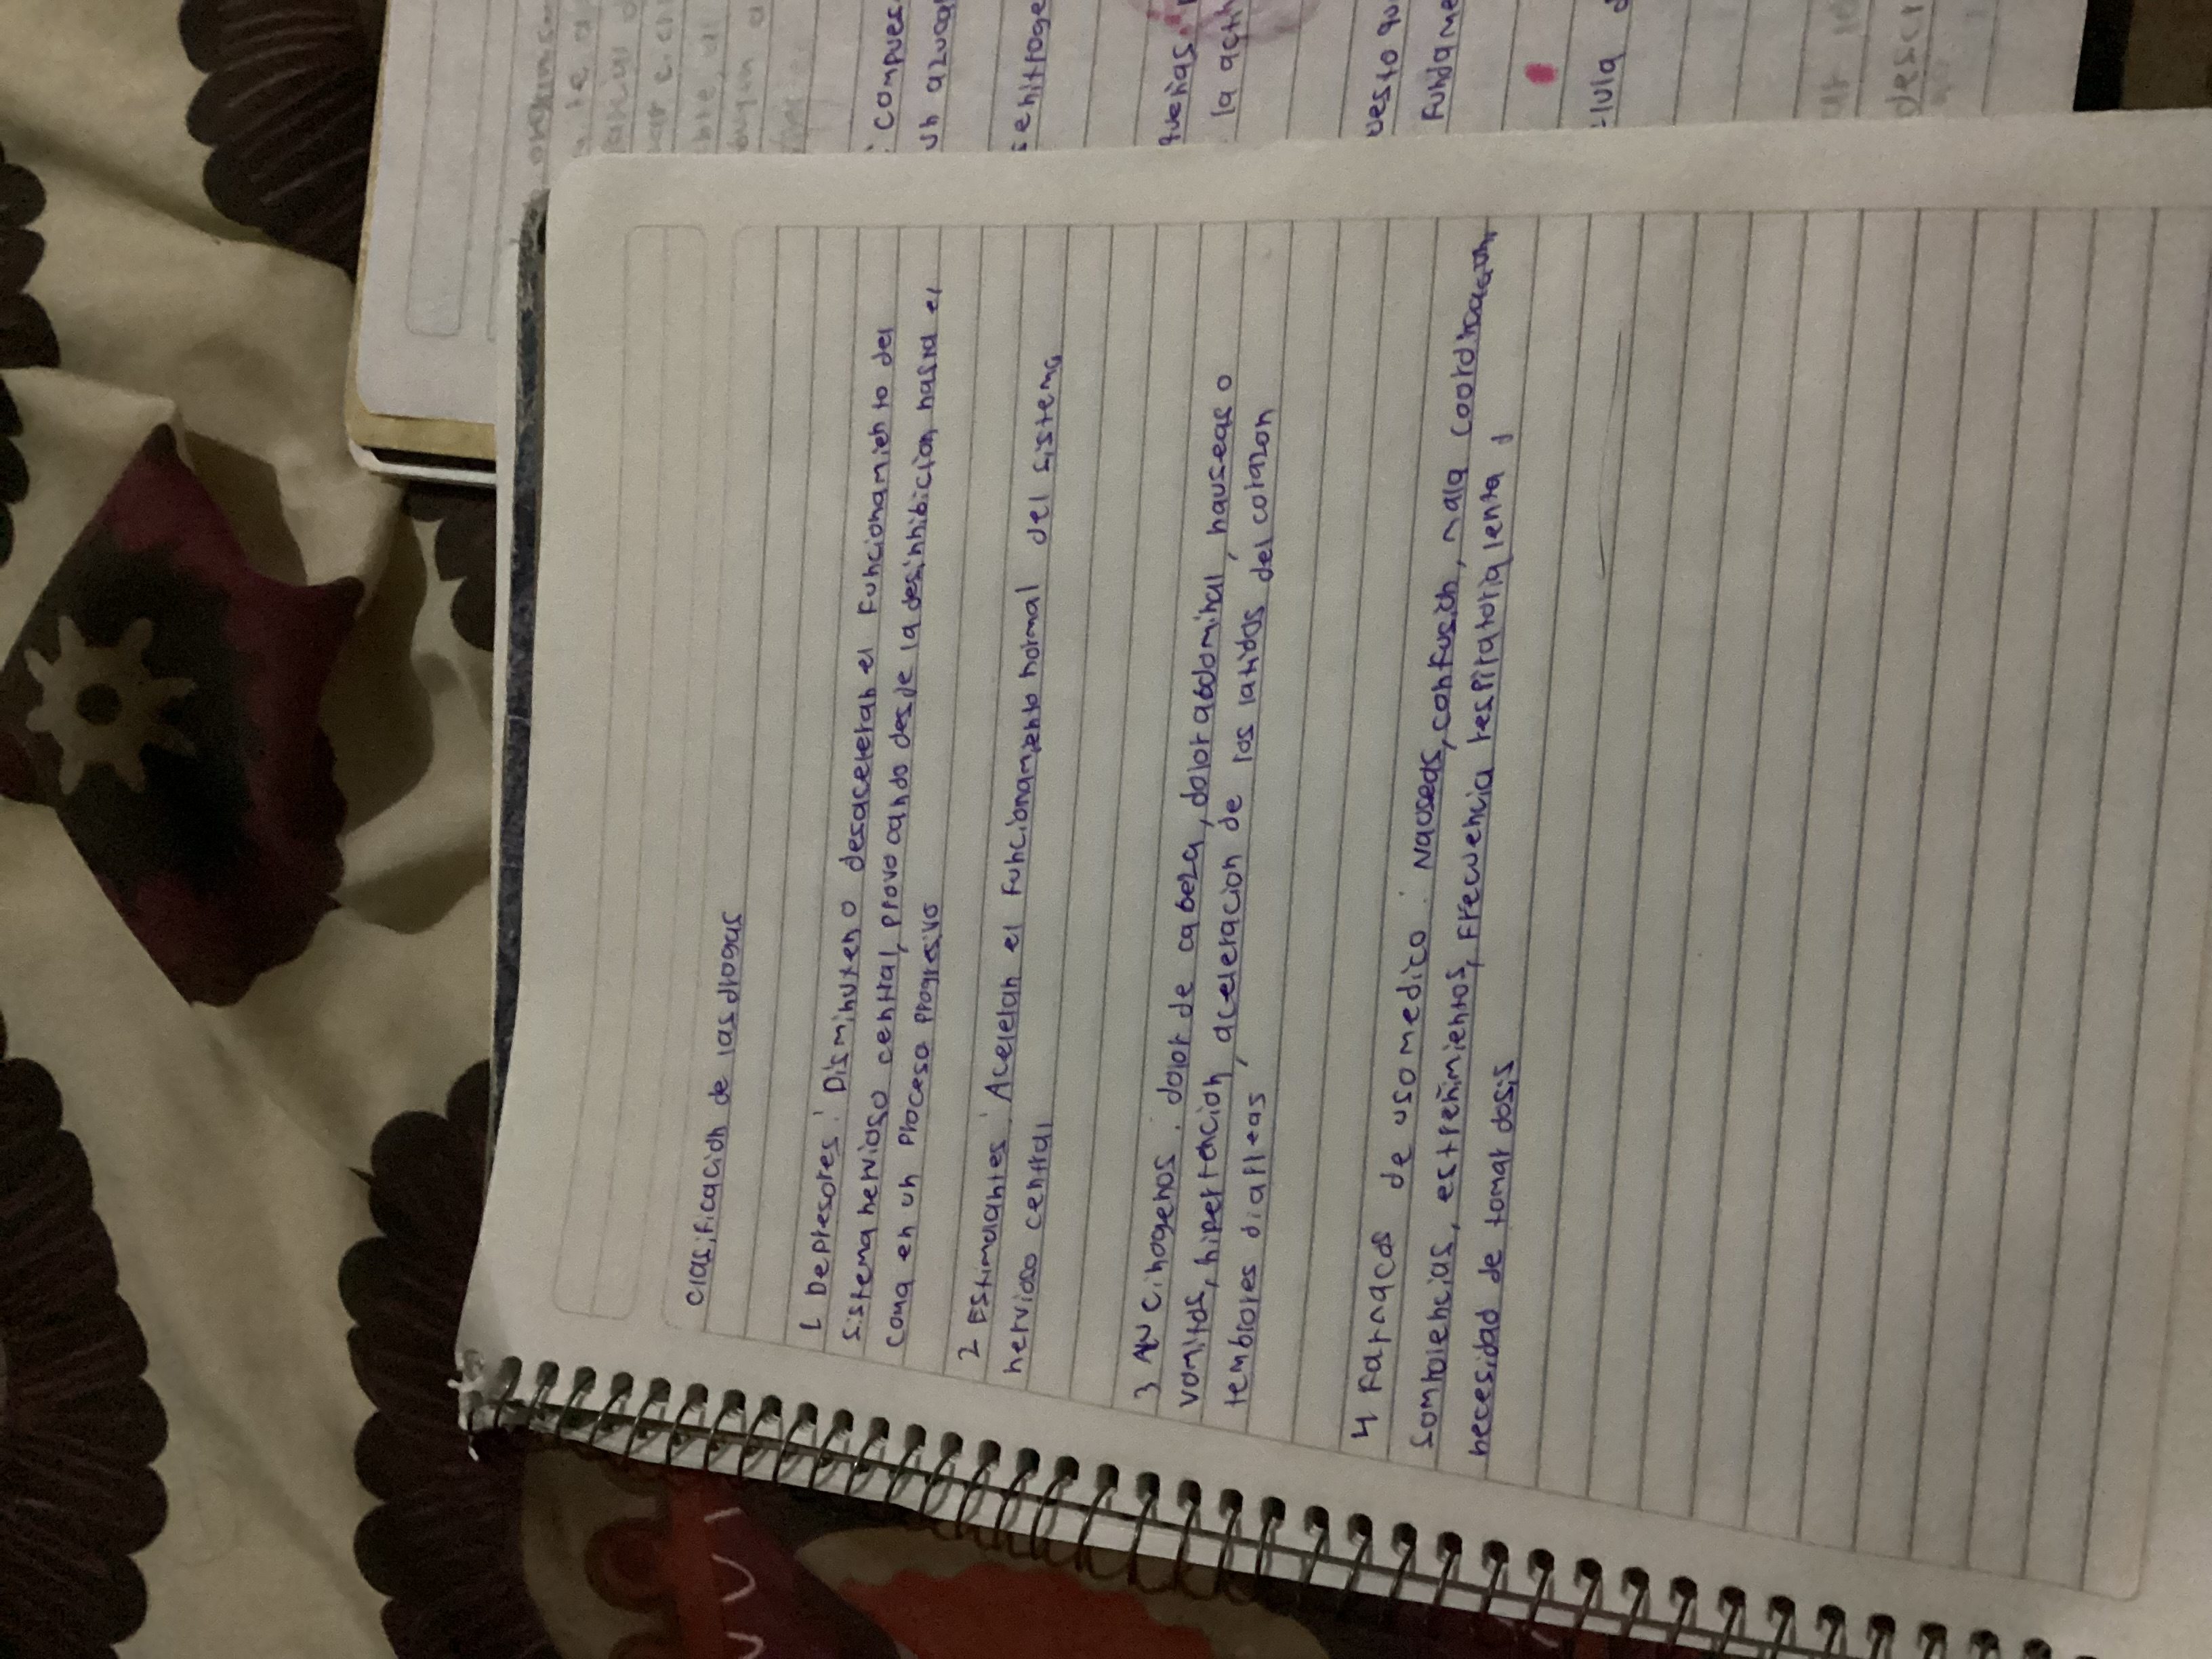 clasificacion de las drogas
1 Depresores: Disminuyen o desaceleran el Funcionamiento del
sistema nervioso central, provocando desde la desinhibicion hasta el
coma en un Proceso progresivo
2 Estimulantes: Aceleran el Funcionamiento normal del sistema
nervioso central
3 Ancinogenos: dolor de cabeza, dolor abdominal, nauseas o
vomitos, hipertencion, aceleracion de los latidos del corazon
tembrores diarreas
4 Farmacos de uso medico: Nauseas, confusion, mala coordinacion,
somnolencias, estreñimientos, Frecuencia respiratoria lenta y
necesidad de tomar dosis
compues
un azucar
se nitroge
queñas
la acti
uesto qu
Fundame